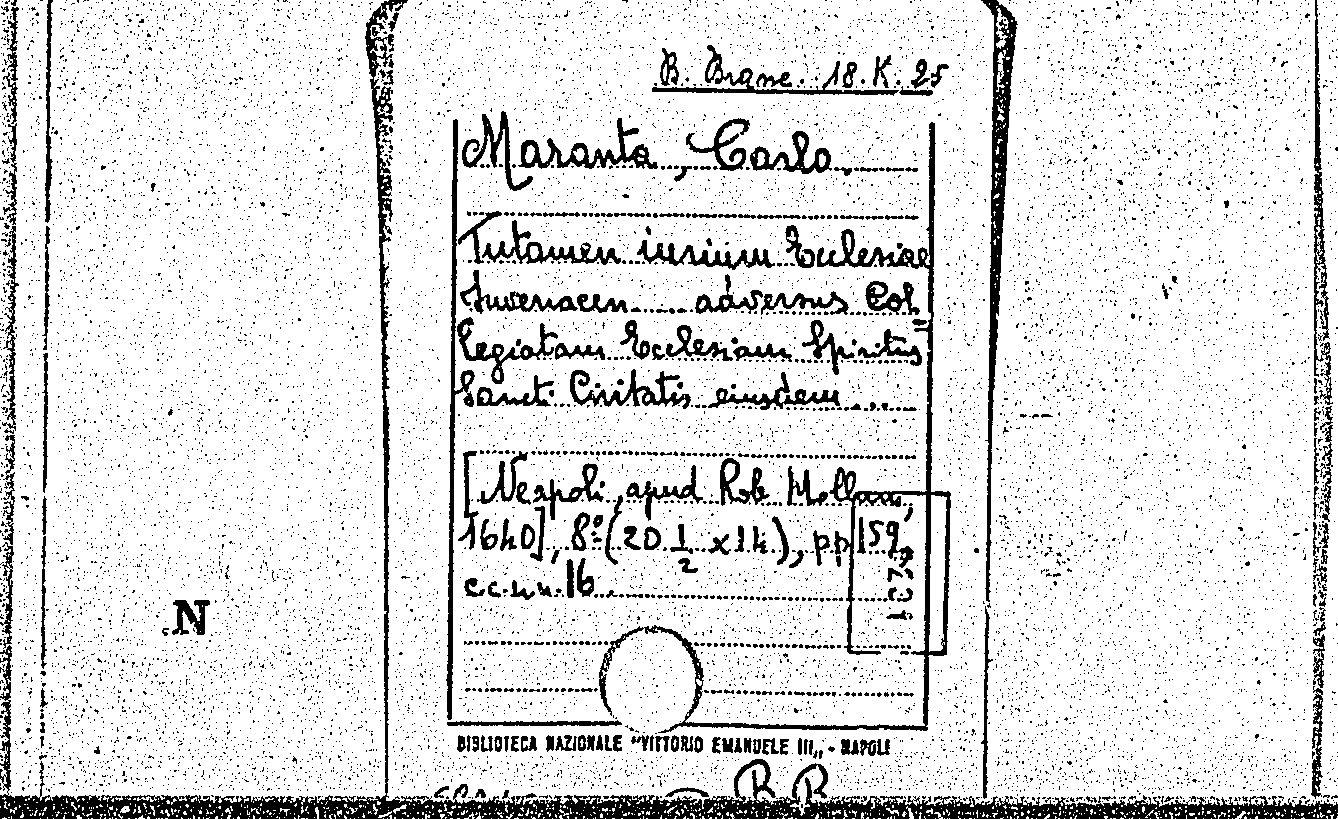 B. Branc. 18. K. 25
Maranta, Carlo.
Tutamen iurium Ecclesiae
Iuvenacen.... adversus Col=
legiatam Ecclesiam Spiritus
Sancti Civitatis eiusdem...
[Neapoli, apud Rob Mollum,
1640], 8º (20 1/2 x 14), pp 159,
c.c.nn. 16.
N
BIBLIOTECA NAZIONALE "VITTORIO EMANUELE III„ - NAPOLI